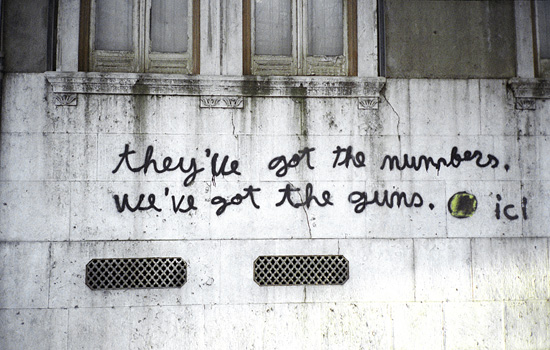 they've got the numbers.
we've got the guns. ici